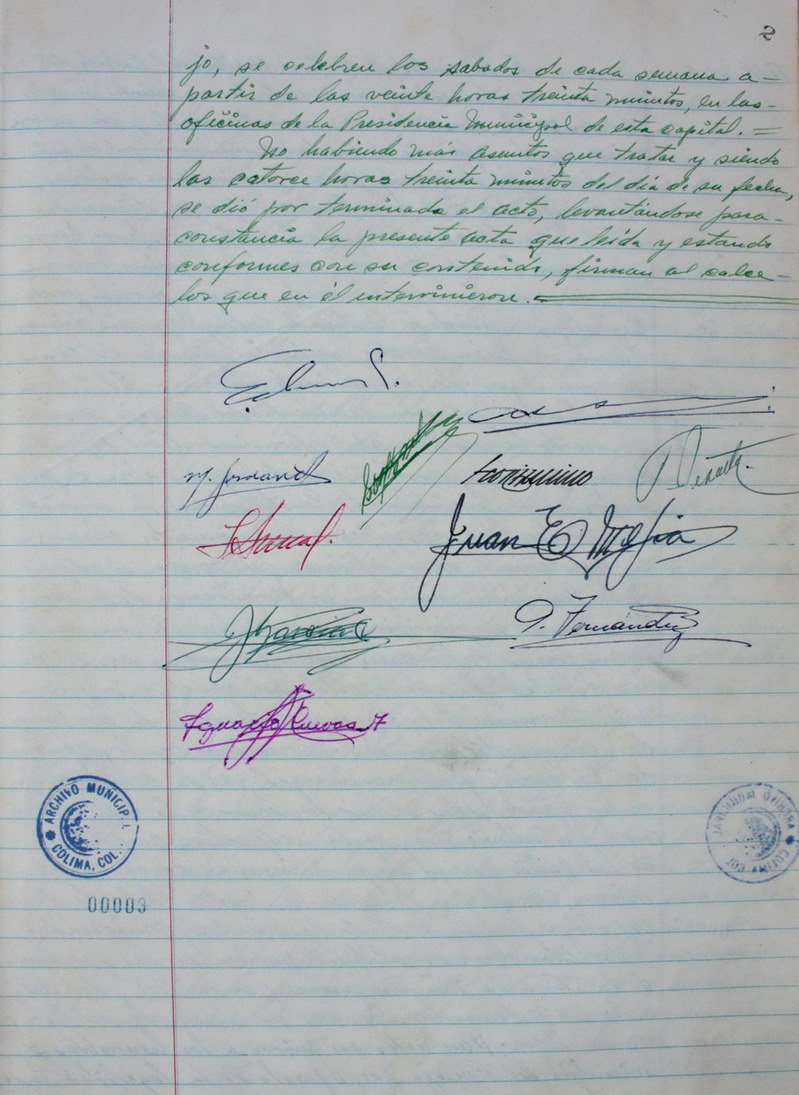 2
jo, se celebren los sabados de cada semana a-
partir de las veinte horas treinta minutos, en las-
oficinas de la Presidencia Municipal de esta capital. =
No habiendo más asuntos que tratar y siendo
las catorce horas treinta minutos del día de su fecha,
se dió por terminado el acto, levantándose para-
constancia la presente acta que leída y estando
conformes con su contenido, firman al calce-
los que en él intervinieron.
Juan E Mejia
Fernández
Ignacio Cuevas
ARCHIVO MUNICIPAL
COLIMA, COL.
00003